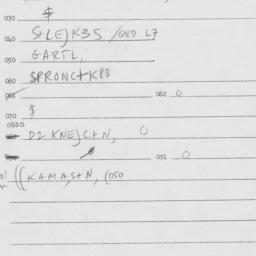 030 $
040 SLEJK3S /OED L7
050 GARTL,
060 SPRONC+KP3
062 0
070 $
0800 D2 KNEJC+N, 0
091 0
((KAMA,S+N, (050